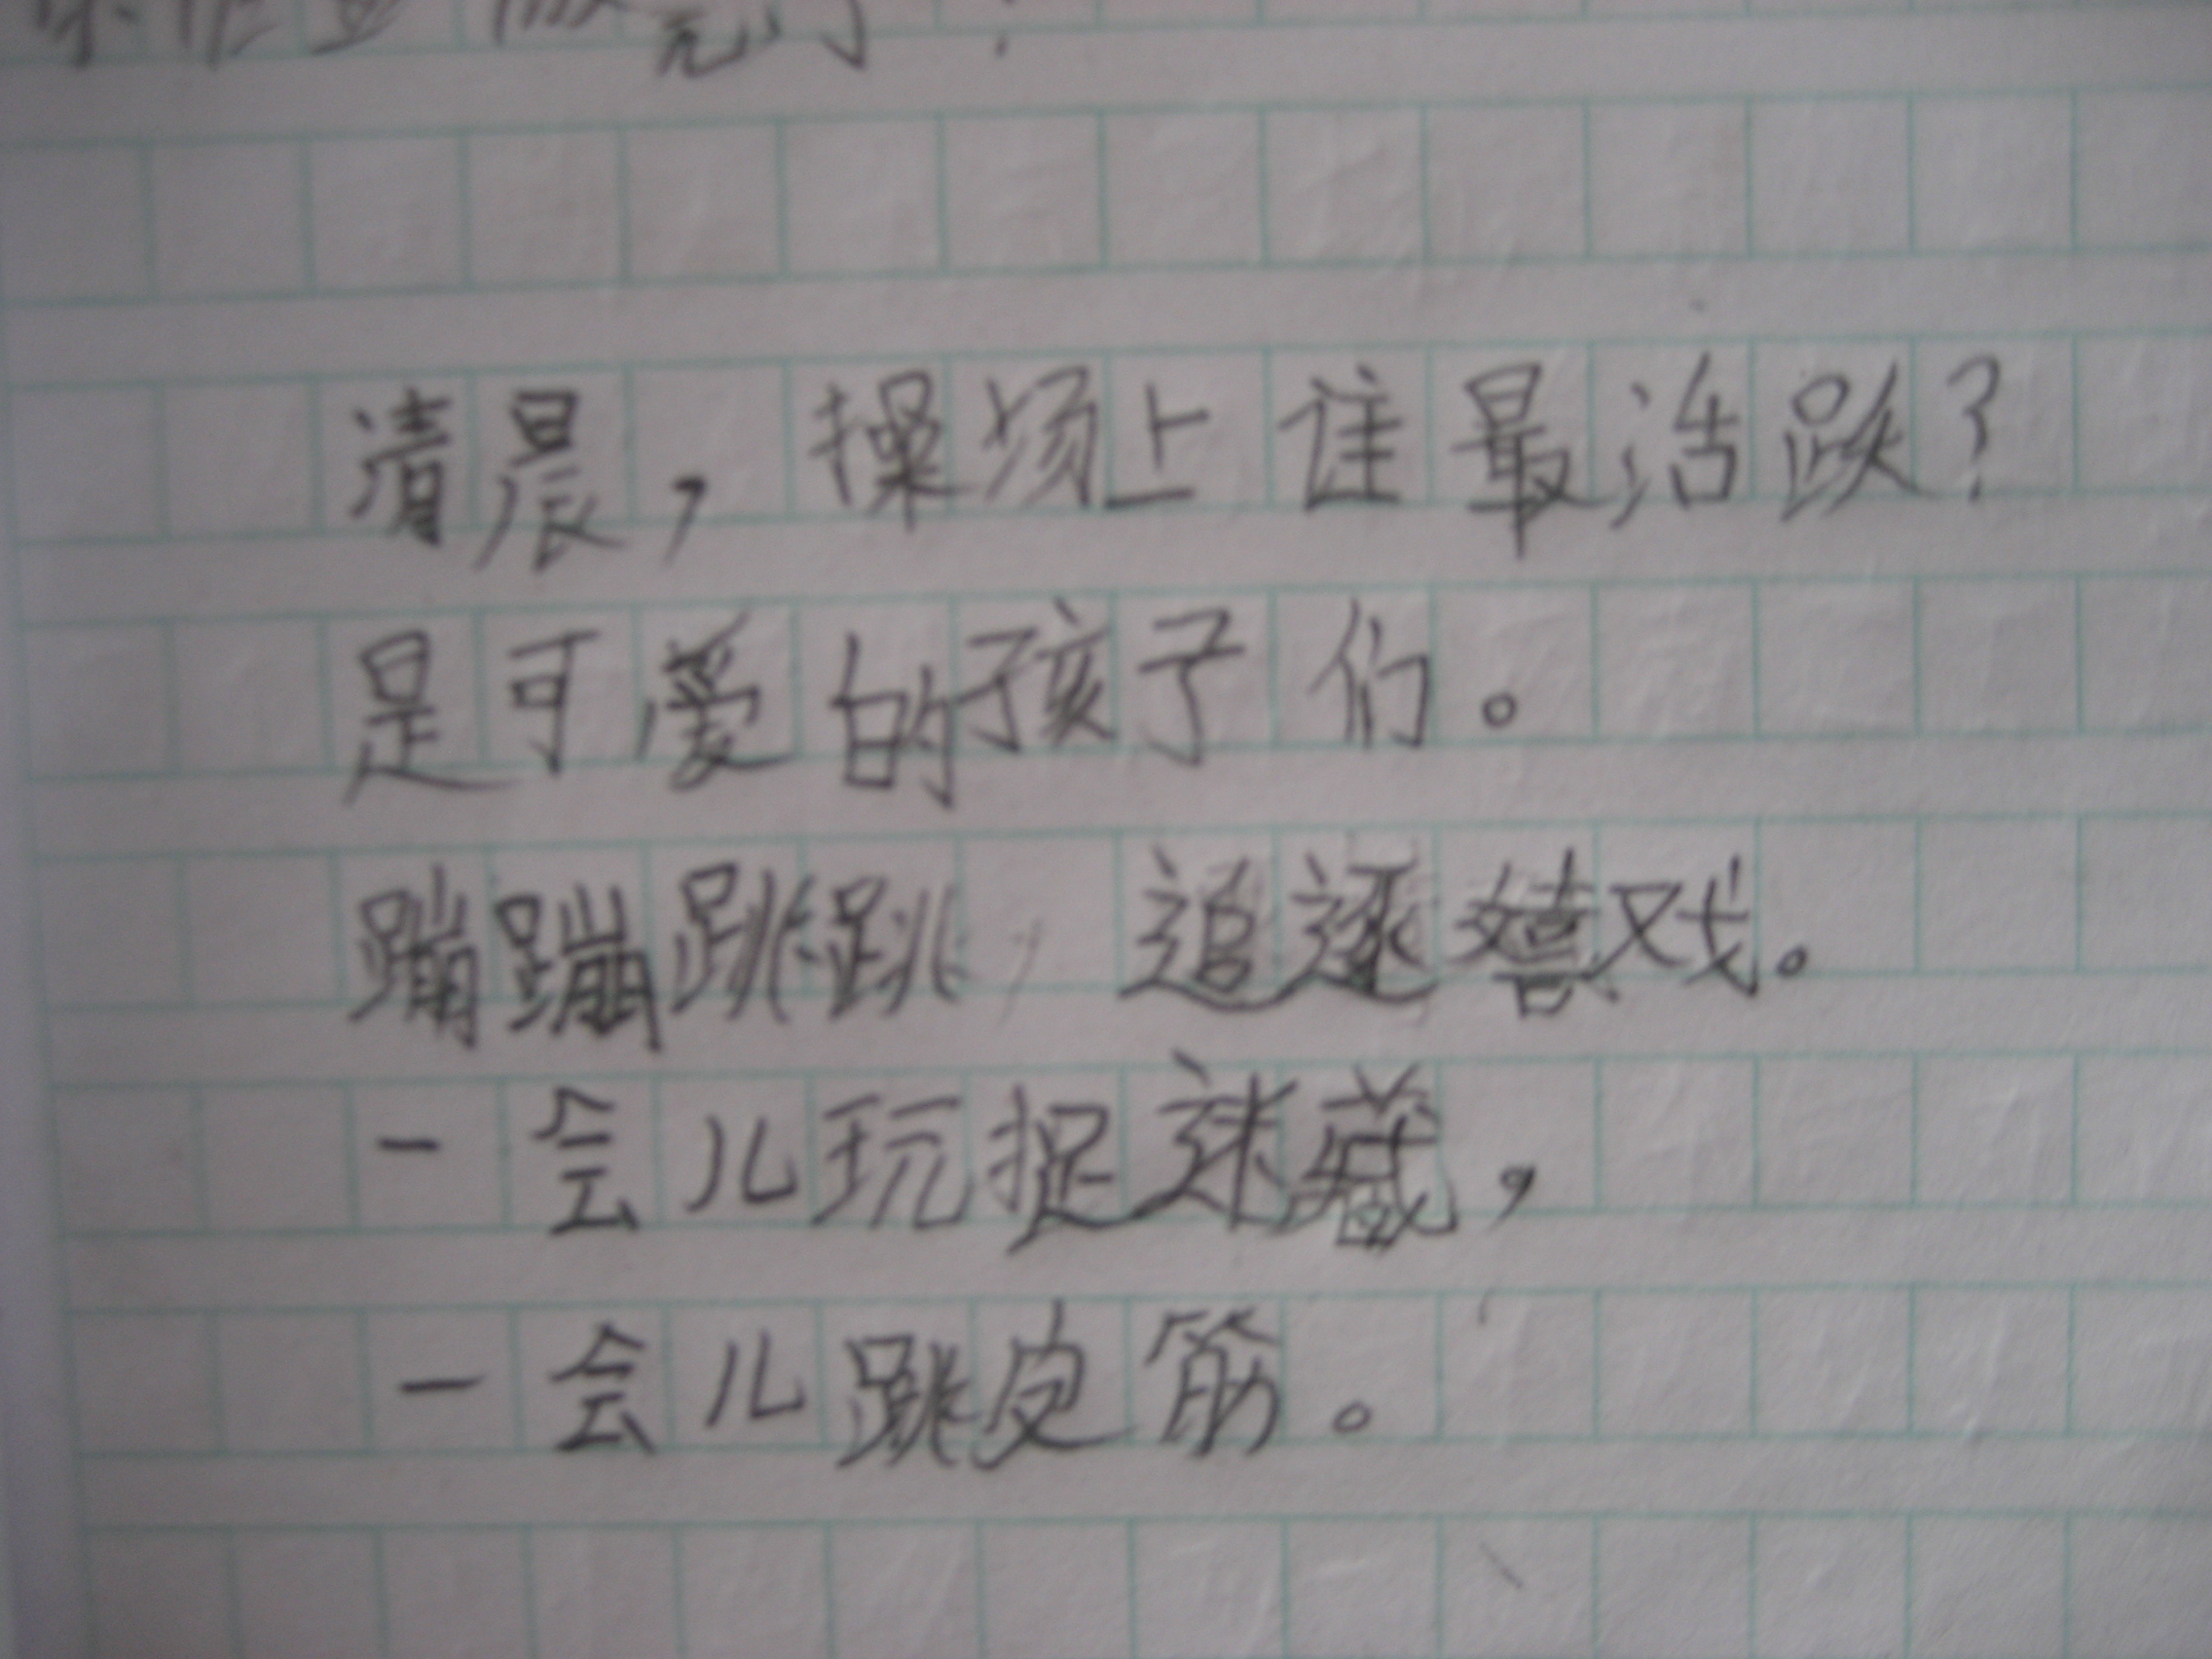 清晨，操场上谁最活跃？
是可爱的孩子们。
蹦蹦跳跳，追逐嬉戏。
一会儿玩捉迷藏，
一会儿跳皮筋。